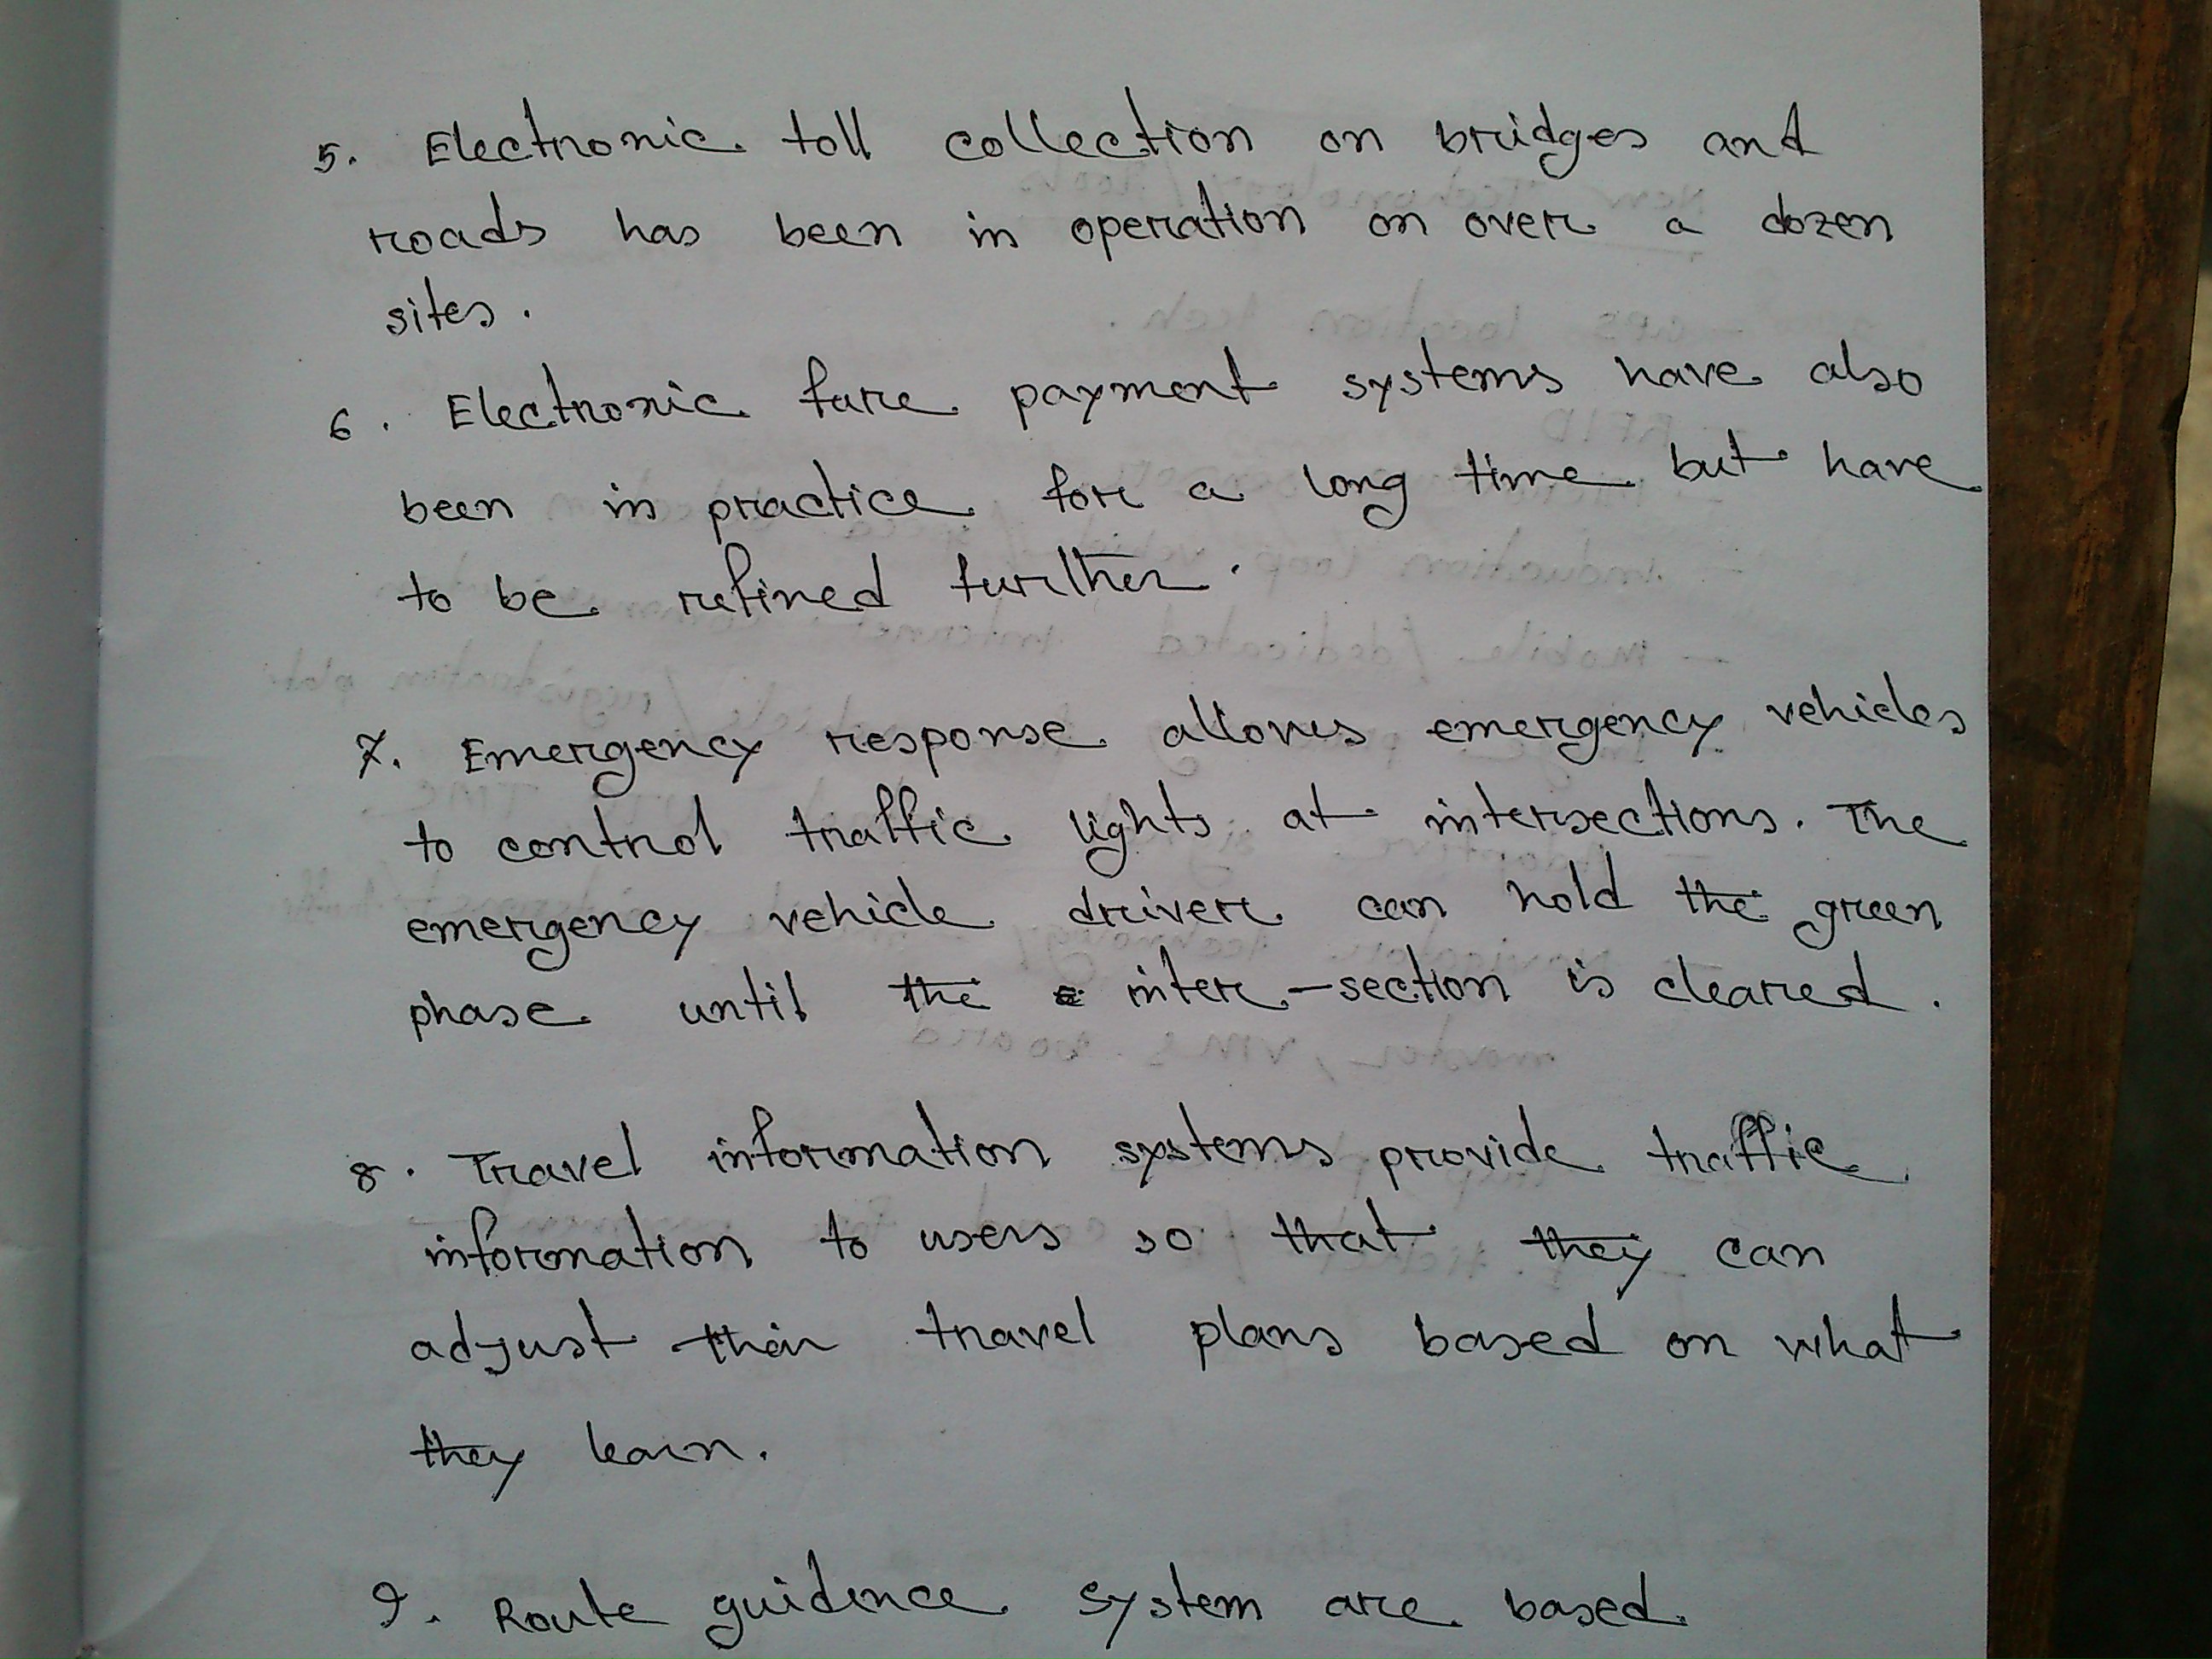 5. Electronic toll collection on bridges and
roads has been in operation on over a dozen
sites.
6. Electronic fare payment systems have also
been in practice for a long time but have
to be refined further.
7. Emergency response allows emergency vehicles
to control traffic lights at intersections. The
emergency vehicle driver can hold the green
phase until the inter-section is cleared.
8. Travel information systems provide traffic
information to users so that they can
adjust their travel plans based on what
they learn.
9. Route guidence system are based